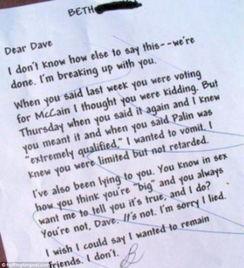 BETH
Dear Dave
I don't know how else to say this--we're
done. I'm breaking up with you.
When you said last week you were voting
for McCain I thought you were kidding. But
Thursday when you said it again and I knew
you meant it and when you said Palin was
"extremely qualified" I wanted to vomit. I
knew you were limited but not retarded.
I've also been lying to you. You know in sex
how you think you're "big" and you always
want me to tell you it's true, and I do?
You're not, Dave. It's not. I'm sorry I lied.
I wish I could say I wanted to remain
friends. I don't.